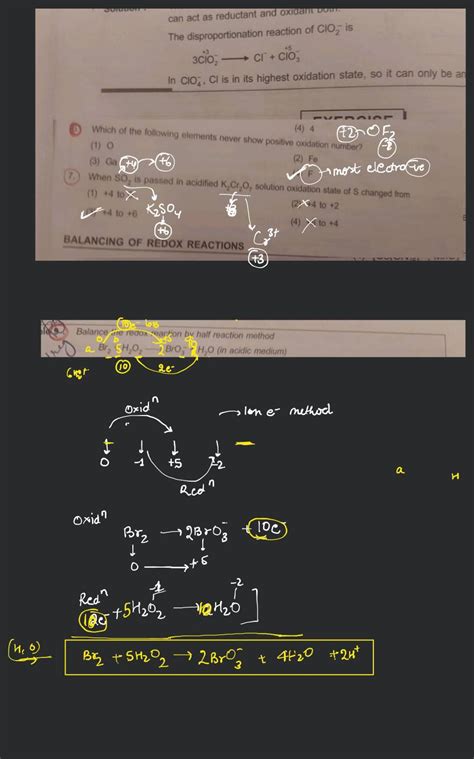 can act as reductant and oxidant both.
The disproportionation reaction of ClO₂⁻ is
+3 +5
3ClO₂⁻ → Cl⁻ + ClO₃⁻
In ClO₄⁻, Cl is in its highest oxidation state, so it can only be an
EXERCISE
(4) 4
+2 ← O F₂
Which of the following elements never show positive oxidation number?
(1) O
(2) Fe
(3) Ga
+4 → +6
F → most electro -ve
7. When SO₂ is passed in acidified K₂Cr₂O₇ solution oxidation state of S changed from
(1) +4 to
(2) +4 to +2
+4 to +6
(4) to +4
K₂SO₄
+6
Cr³⁺
+3
BALANCING OF REDOX REACTIONS
Balance the redox reaction by half reaction method
Br₂ 5H₂O₂ → 2BrO₃⁻ H₂O (in acidic medium)
10 2e⁻
Oxidⁿ → Ion e⁻ method
0 -1 +5 -2
Redⁿ
a H
Oxidⁿ
Br₂ → 2BrO₃⁻ + 10e⁻
0 → +5
Redⁿ
-1 -2
10e⁻ + 5H₂O₂ → 10H₂O ]
(H, O)
Br₂ + 5H₂O₂ → 2BrO₃⁻ + 4H₂O + 2H⁺